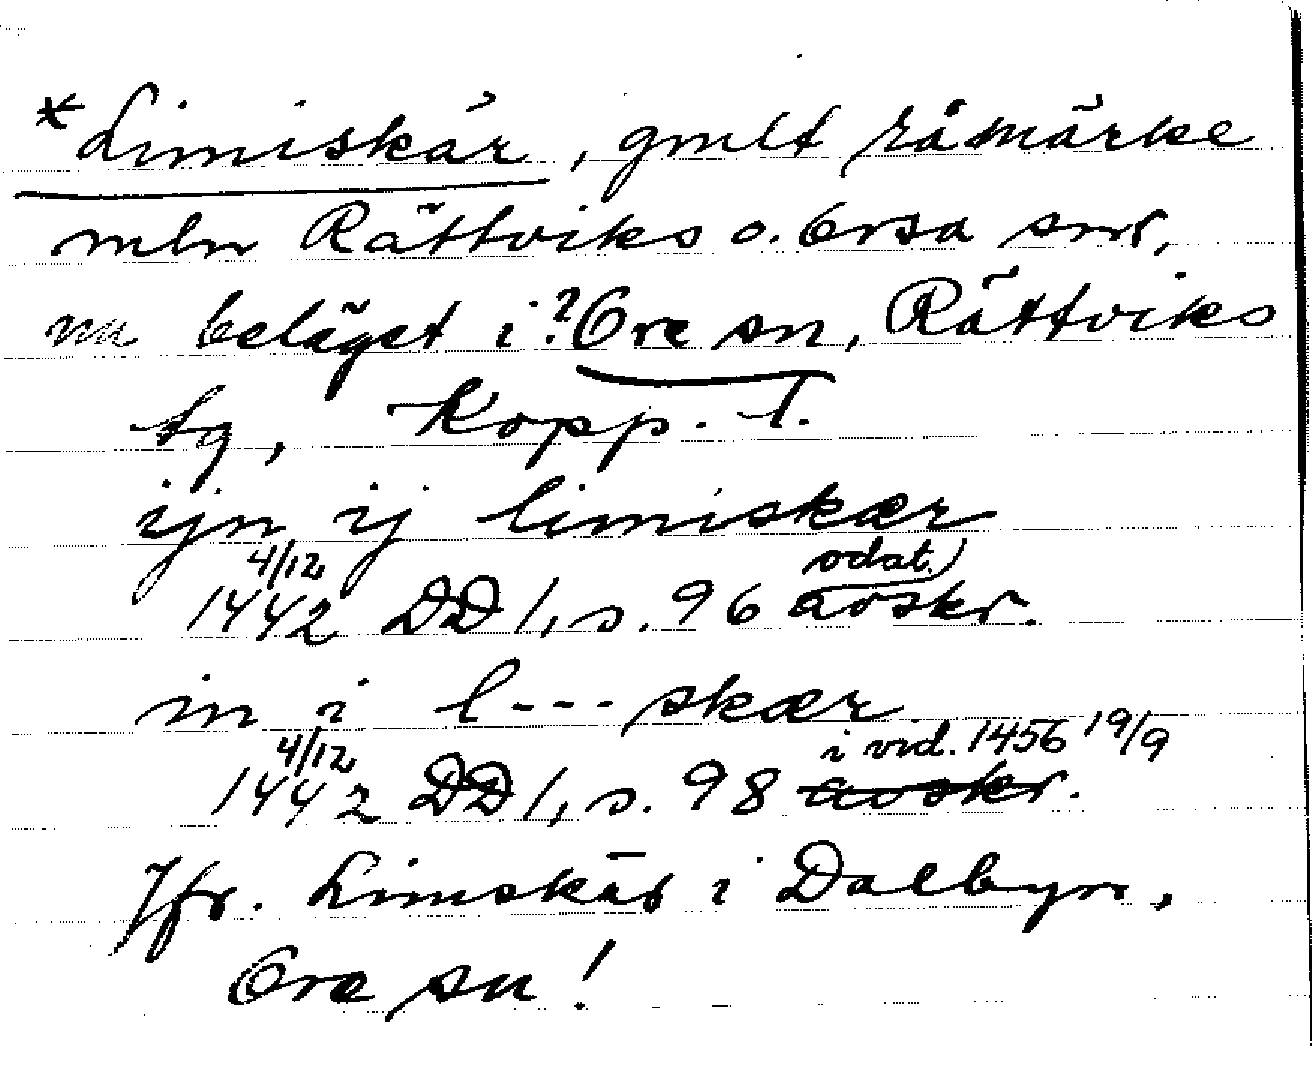 *Limiskär, gmlt råmärke
mln Rättviks o. Orsa snr,
nu beläget i ? Ore sn, Rättviks
tg, Kopp. l.
ijn ij limiskær
4/12 1442 DD 1, s. 96 odat. avskr.
in i l---skær
4/12 1442 DD 1, s. 98 i vid. 1456 19/9 avskr.
Jfr. Limskär i Dalbyn,
Ore sn!